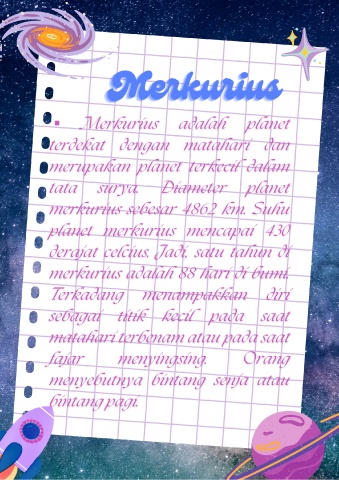 Merkurius
▪ Merkurius adalah planet
terdekat dengan matahari dan
merupakan planet terkecil dalam
tata surya. Diameter planet
merkurius sebesar 4862 km. Suhu
planet merkurius mencapai 430
derajat celcius. Jadi, satu tahun di
merkurius adalah 88 hari di bumi.
Terkadang menampakkan diri
sebagai titik kecil pada saat
matahari terbenam atau pada saat
fajar menyingsing. Orang
menyebutnya bintang senja atau
bintang pagi.